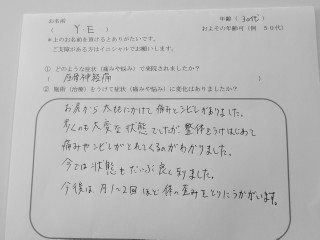 お名前 年齢(30代)
(Y・E) およその年齢可(例 50代)
*上のお名前を頂けるとありがたいです。
ご支障がある方はイニシャルでお願いします。
① どのような症状(痛みや悩み)で来院されましたか?
( 座骨神経痛 )
② 施術(治療)をうけて症状(痛みや悩み)に変化はありましたか?
お尻から太ももにかけて痛みとシビレがありました。
歩くのも大変な状態でしたが、整体をうけはじめて
痛みやシビレがとれてくるのがわかりました。
今では状態もだいぶ良くなりました。
今後は月1〜2回ほど体の歪みをとりにうかがいます。